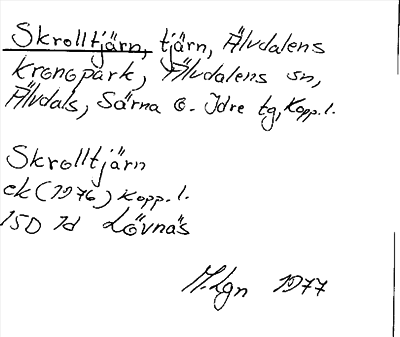 Skrolltjärn, tjärn, Älvdalens
kronopark, Älvdalens sn,
Älvdals, Särna o. Idre tg, Kopp. l.
Skrolltjärn
ek (1976) Kopp. l.
15D 1d Lövnäs
M.Lgn 1977